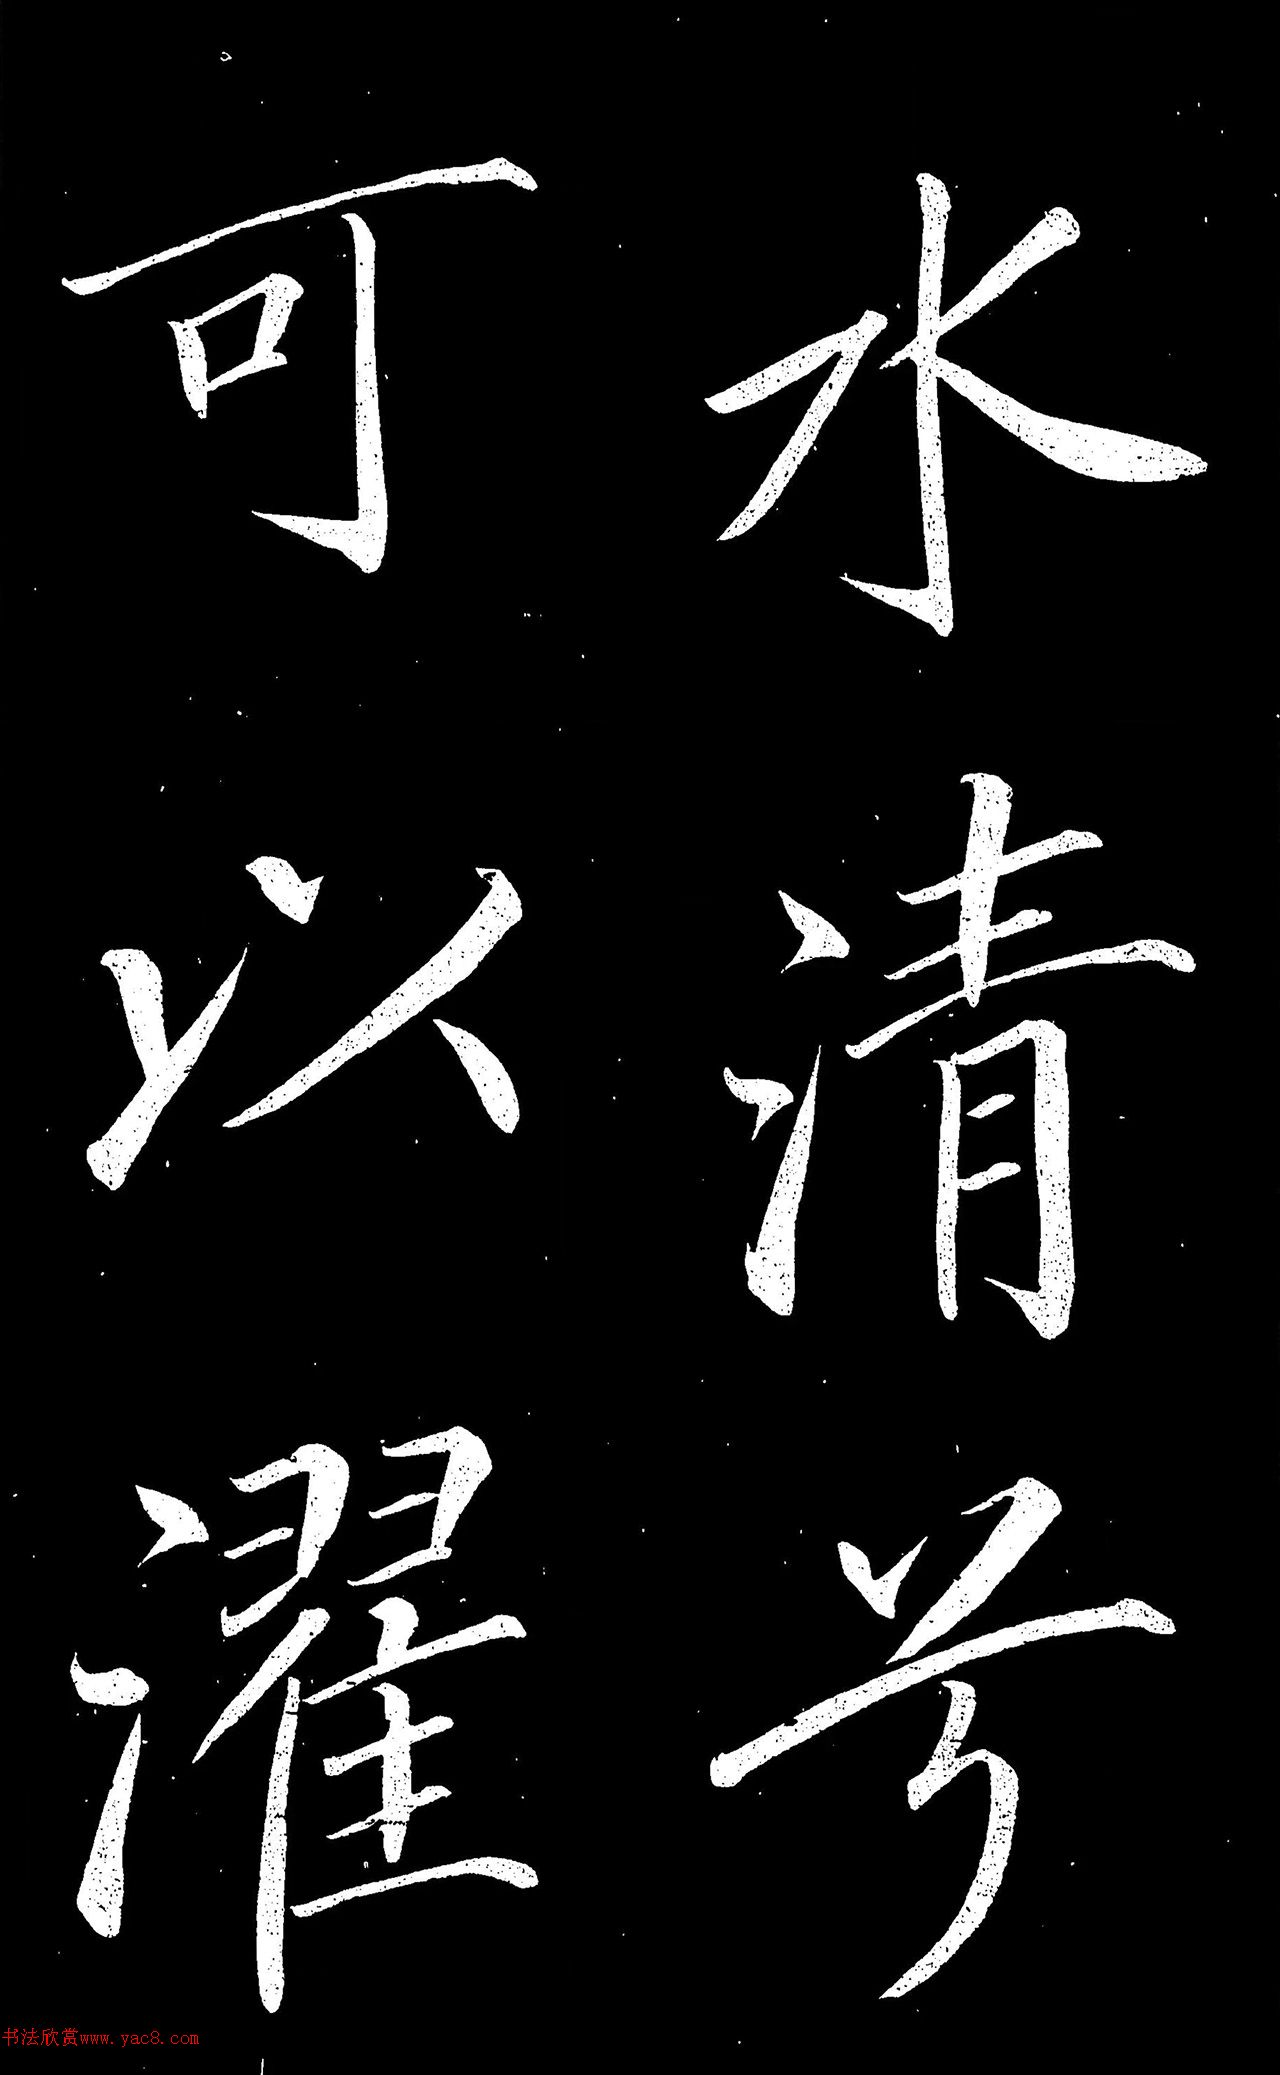 水清兮
可以濯
书法欣赏www.yac8.com